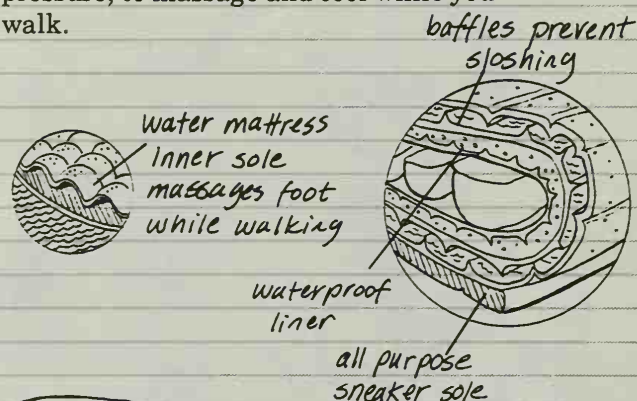 walk.
baffles prevent
sloshing
water mattress
inner sole
massages foot
while walking
waterproof
liner
all purpose
sneaker sole